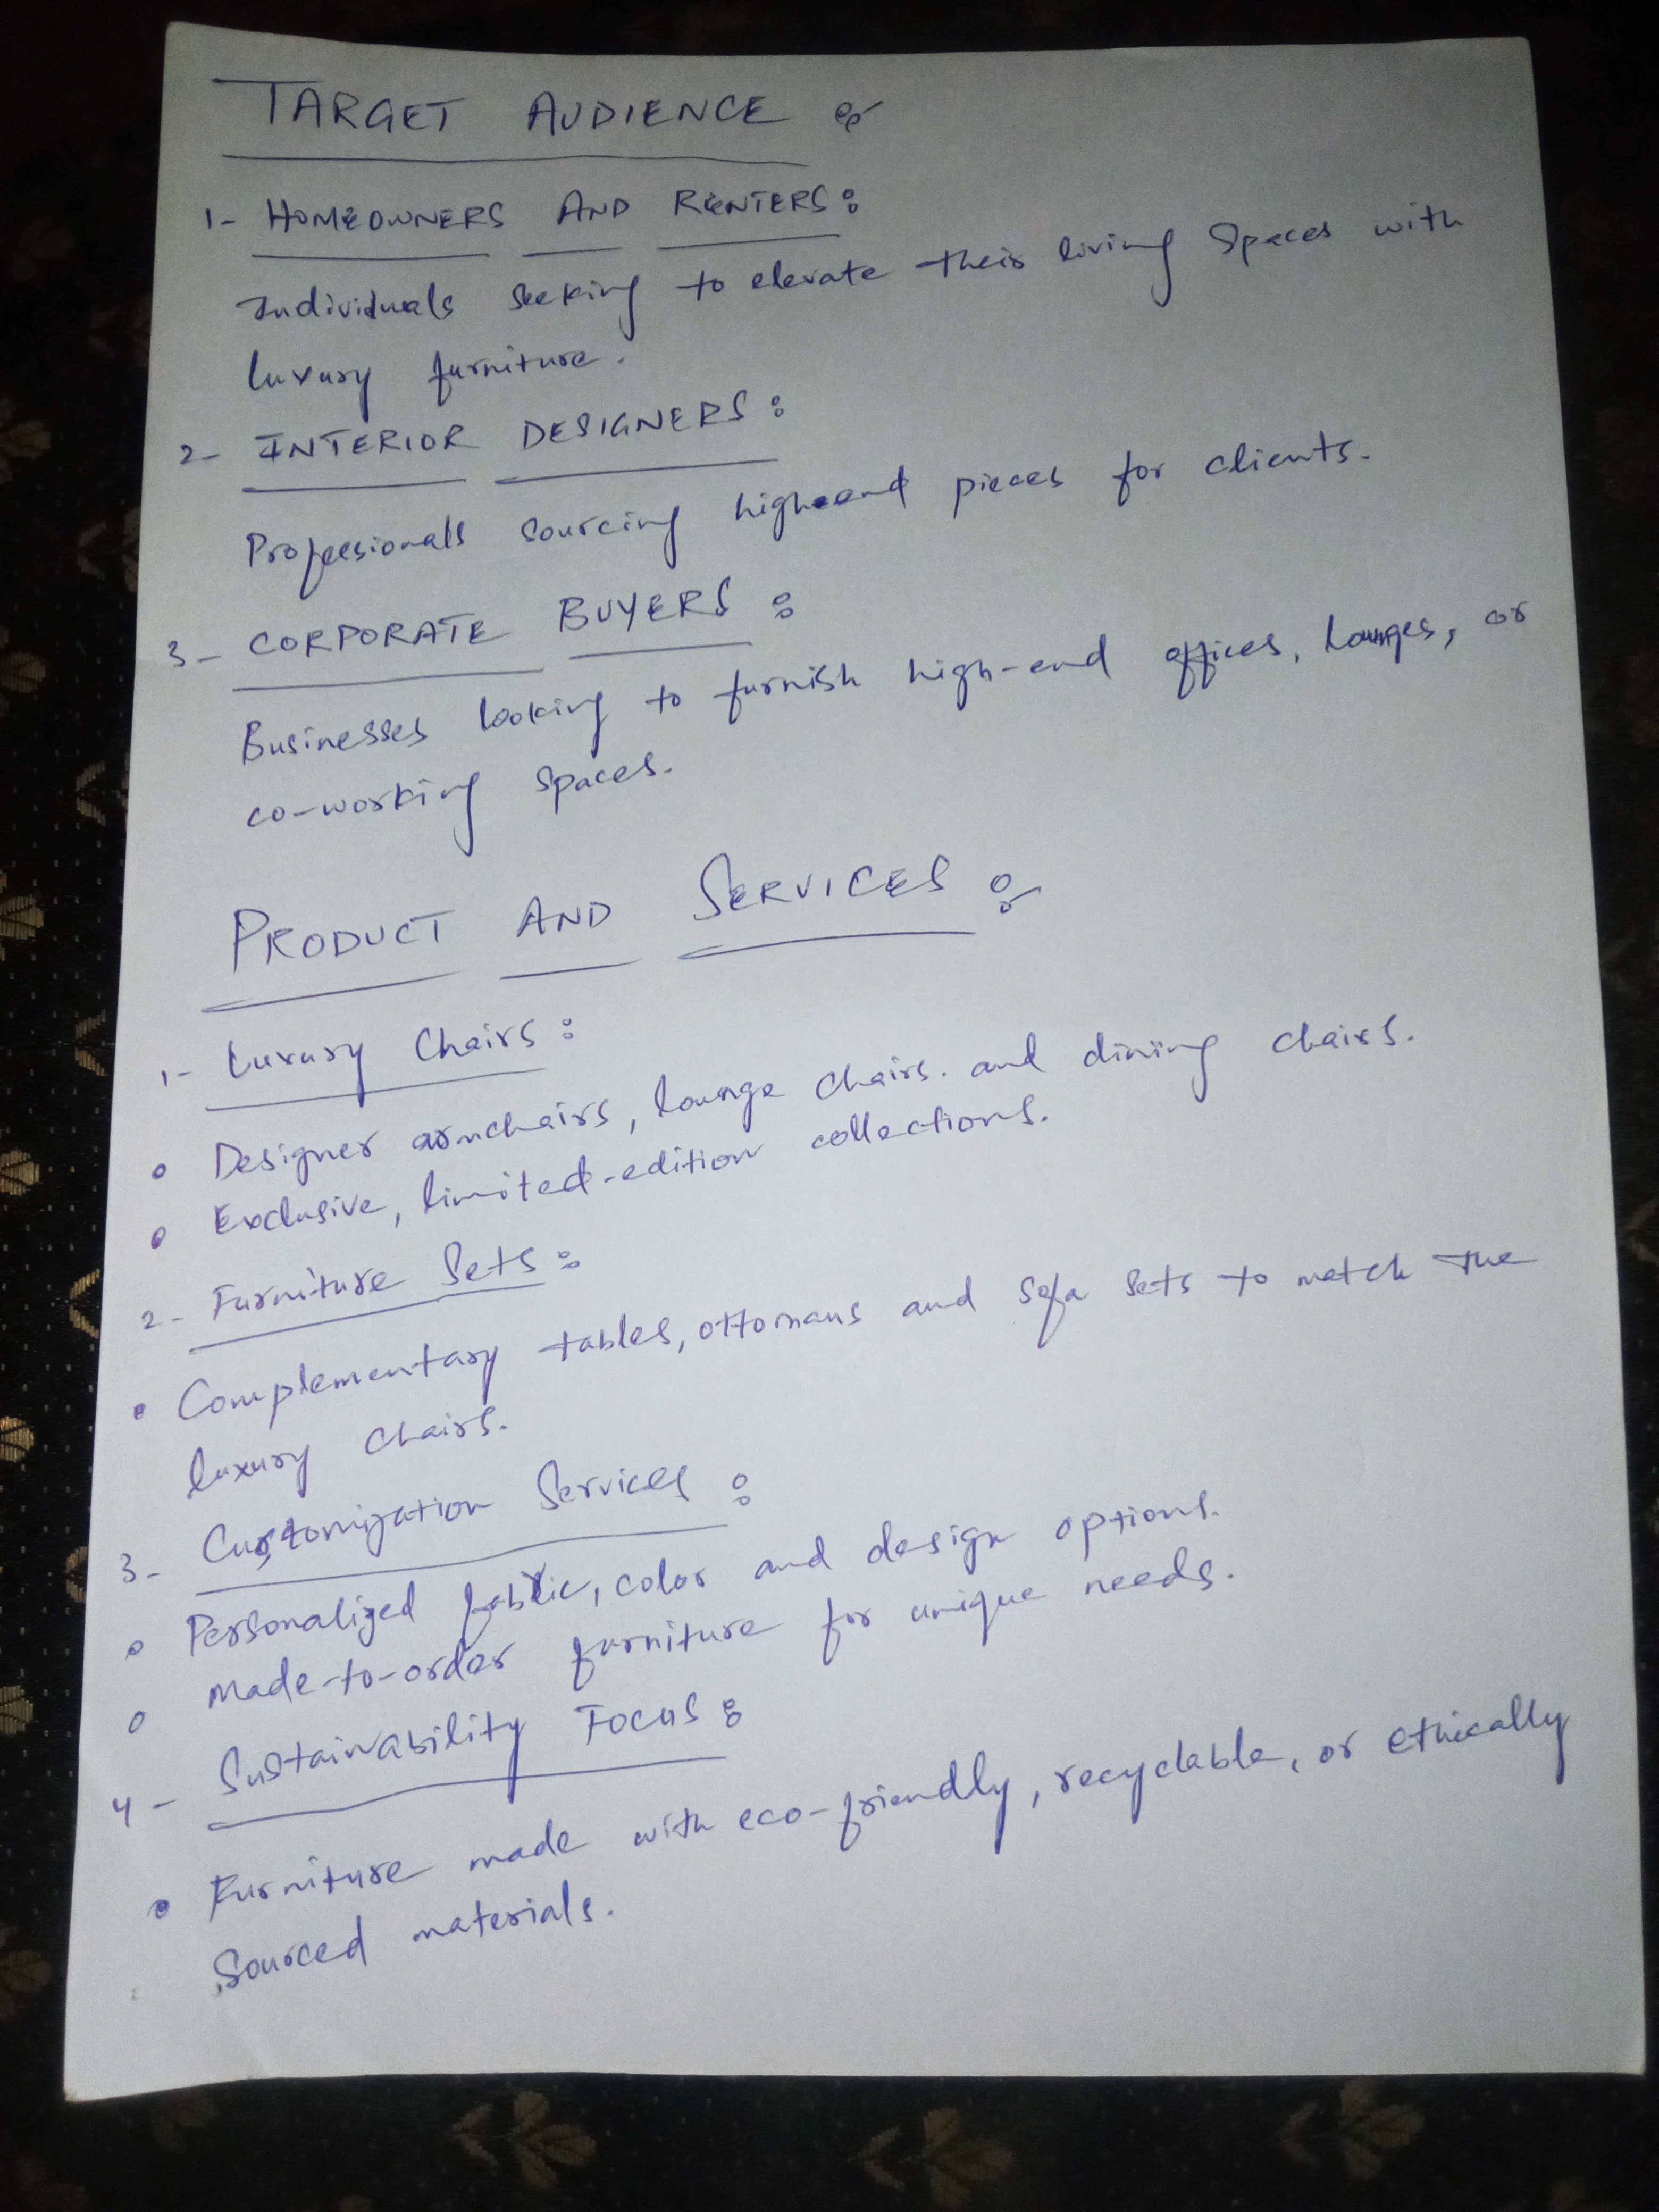 TARGET AUDIENCE :-
1- HOMEOWNERS AND RENTERS:
Individuals seeking to elevate their living spaces with
luxury furniture.
2- INTERIOR DESIGNERS:
Professionals sourcing high-end pieces for clients.
3- CORPORATE BUYERS :
Businesses looking to furnish high-end offices, lounges, or
co-working spaces.
PRODUCT AND SERVICES :-
1- Luxury Chairs:
• Designer armchairs, lounge chairs. and dining chairs.
• Exclusive, limited-edition collections.
2- Furniture Sets:
• Complementary tables, ottomans and sofa sets to match the
luxury chairs.
3- Customization Services :
• Personalized fabric, color and design options.
• Made-to-order furniture for unique needs.
4- Sustainability Focus:
• Furniture made with eco-friendly, recyclable, or ethically
sourced materials.